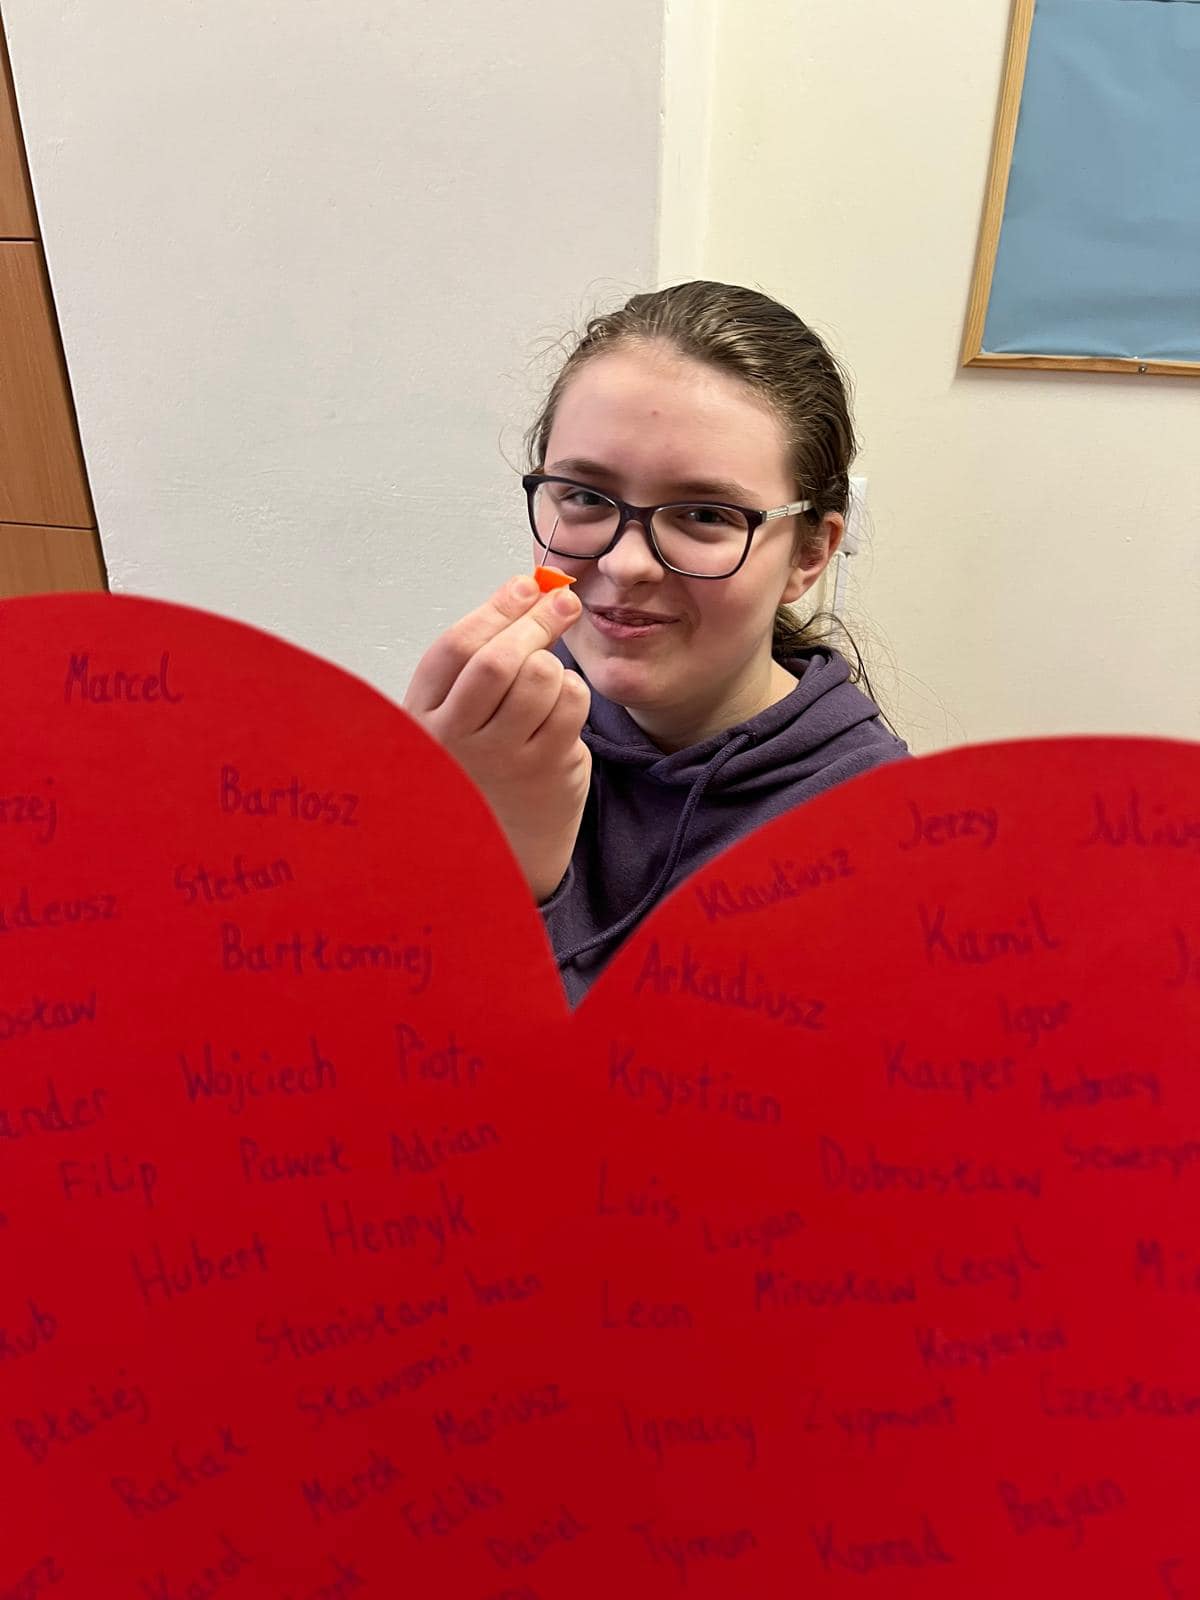 Marcel
rzej
Bartosz
Jerzy
Juliu
adeusz
Stefan
Klaudiusz
Kamil
Bartłomiej
Arkadiusz
osław
Igor
Wojciech
Piotr
Krystian
Kacper
ander
Filip
Paweł
Adrian
Dobrosław
Seweryn
Henryk
Luis
Lucjan
Hubert
Mirosław
Cecyl
Mi
Stanisław
Iwan
Leon
kub
Sławomir
Krzysztof
Błażej
Mariusz
Ignacy
Zygmunt
Czesław
Rafał
Marek
Feliks
Brajan
Daniel
Tymon
Konrad
Karol